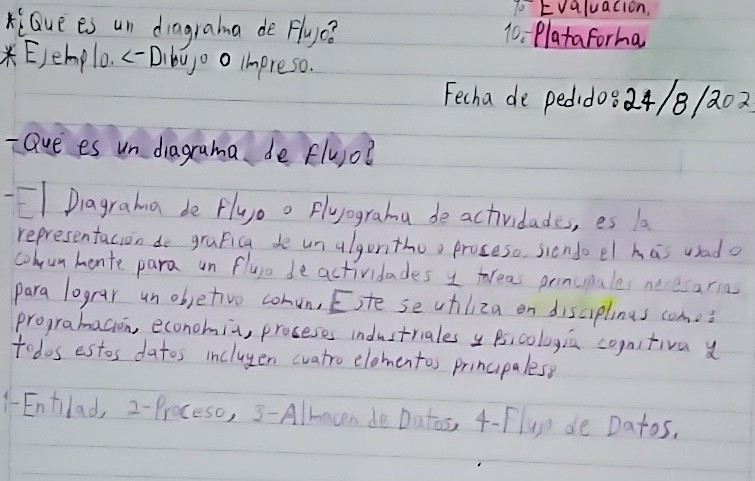 *¿Qué es un diagrama de Flujo?
9- Evaluación.
* Ejemplo. <- Dibujo o impreso.
10.- Plataforma
Fecha de pedido: 24/8/202
- Qué es un diagrama de flujo?
- El Diagrama de Flujo o Flujograma de actividades, es la
representación de grafica de un algoritmo o proseso. siendo el más usado
comunmente para un flujo de actividades y tareas principales necesarias
para lograr un objetivo comun, Este se utiliza en disciplinas como:
programación, economía, prosesos industriales y Psicología cognitiva y
todos estos datos incluyen cuatro elementos principales:
1-Entidad, 2-Proceso, 3-Almacen de Datos, 4-Flujo de Datos.